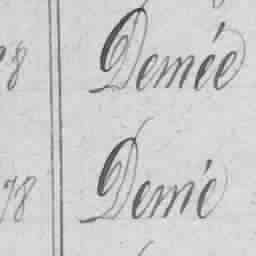 8 Demée
78 Demé